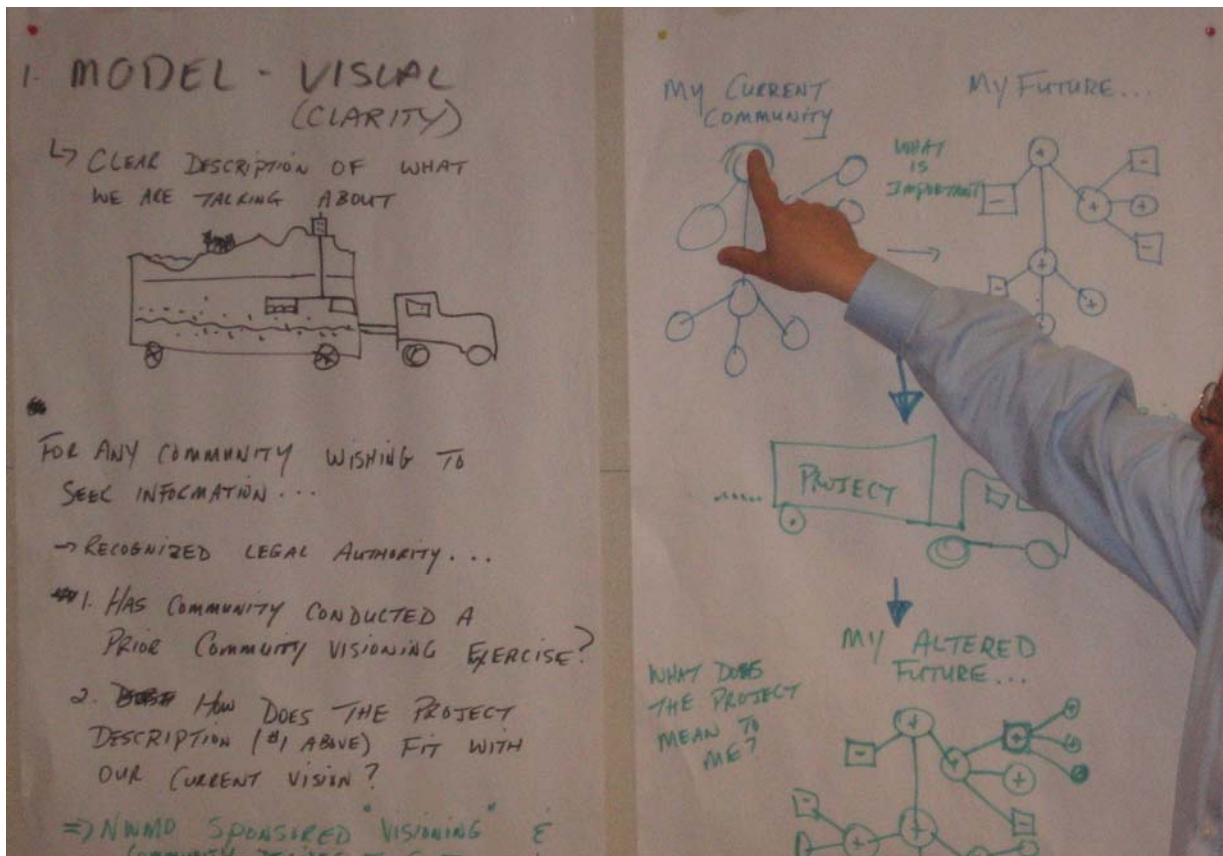 1. MODEL - VISUAL
(CLARITY)
↳ CLEAR DESCRIPTION OF WHAT
WE ARE TALKING ABOUT
FOR ANY COMMUNITY WISHING TO
SEEK INFORMATION...
→ RECOGNIZED LEGAL AUTHORITY...
1. HAS COMMUNITY CONDUCTED A
PRIOR COMMUITY VISIONING EXERCISE?
2. HOW DOES THE PROJECT
DESCRIPTION (#1 ABOVE) FIT WITH
OUR CURRENT VISION?
=> NWMO SPONSORED "VISIONING" &
MY CURRENT
COMMUNITY
MY FUTURE...
WHAT
IS
IMPORTANT
PROJECT
MY ALTERED
FUTURE...
WHAT DOES
THE PROJECT
MEAN TO
ME?